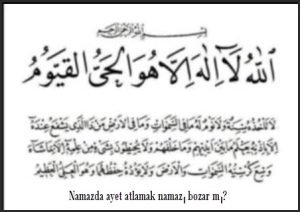 بسم الله الرحمن الرحيم
اَللّٰهُ لَآ اِلٰهَ اِلَّا هُوَ الْحَىُّ الْقَيُّومُ
لَا تَأْخُذُهُ سِنَةٌ وَلَا نَوْمٌ لَهُ مَا فِي السَّمٰوَاتِ وَمَا فِي الْاَرْضِ مَنْ ذَا الَّذِي يَشْفَعُ عِنْدَهُ
اِلَّا بِاِذْنِهِ يَعْلَمُ مَا بَيْنَ اَيْدِيهِمْ وَمَا خَلْفَهُمْ وَلَا يُحِيطُونَ بِشَيْءٍ مِنْ عِلْمِهِ اِلَّا بِمَا شَاءَ
وَسِعَ كُرْسِيُّهُ السَّمٰوَاتِ وَالْاَرْضَ وَلَا يَؤُدُهُ حِفْظُهُمَا وَهُوَ الْعَلِيُّ الْعَظِيمُ
Namazda ayet atlamak namazı bozar mı?